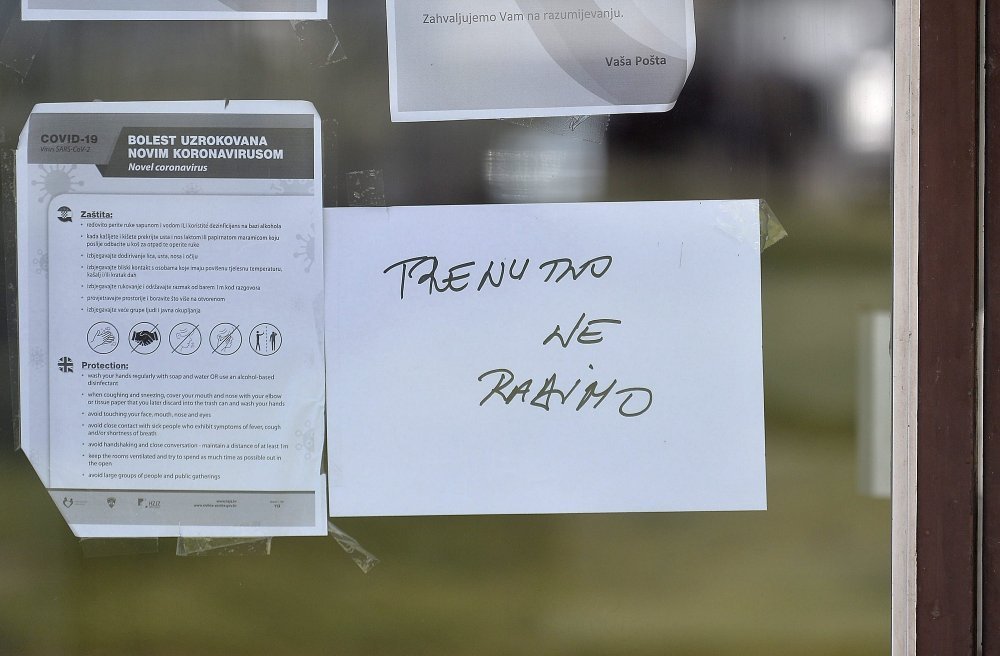 Zahvaljujemo Vam na razumijevanju.
Vaša Pošta
COVID-19
Virus SARS-CoV-2
BOLEST UZROKOVANA
NOVIM KORONAVIRUSOM
Novel coronavirus
Zaštita:
• redovito perite ruke sapunom i vodom ILI koristite dezinficijens na bazi alkohola
• kada kašljete i kišete prekrijte usta i nos laktom ili papirnatom maramicom koju
poslije odbacite u koš za otpad te operite ruke
• izbjegavajte dodirivanje lica, usta, nosa i očiju
• izbjegavajte bliski kontakt s osobama koje imaju povišenu tjelesnu temperaturu,
kašalj i/ili kratak dah
• izbjegavajte rukovanje i održavajte razmak od barem 1m kod razgovora
• provjetravajte prostorije i boravite što više na otvorenom
• izbjegavajte veće grupe ljudi i javna okupljanja
Protection:
• wash your hands regularly with soap and water OR use an alcohol-based
disinfectant
• when coughing and sneezing, cover your mouth and nose with your elbow
or tissue paper that you later discard into the trash can and wash your hands
• avoid touching your face, mouth, nose and eyes
• avoid close contact with sick people who exhibit symptoms of fever, cough
and/or shortness of breath
• avoid handshaking and close conversation - maintain a distance of at least 1m
• keep the rooms ventilated and try to spend as much time as possible out in
the open
• avoid large groups of people and public gatherings
TRENUTNO
NE
RADIMO